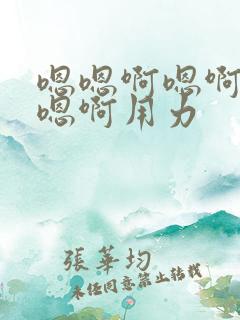 嗯嗯啊嗯啊
嗯啊用力
張華均
未经同意禁止转载